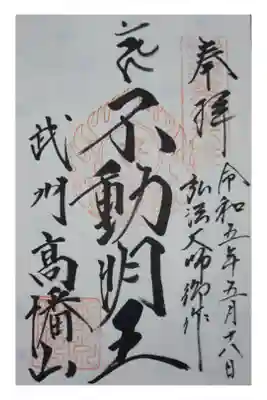 奉拝
令和五年五月十八日
弘法大師御作
不動明王
武州高幡山